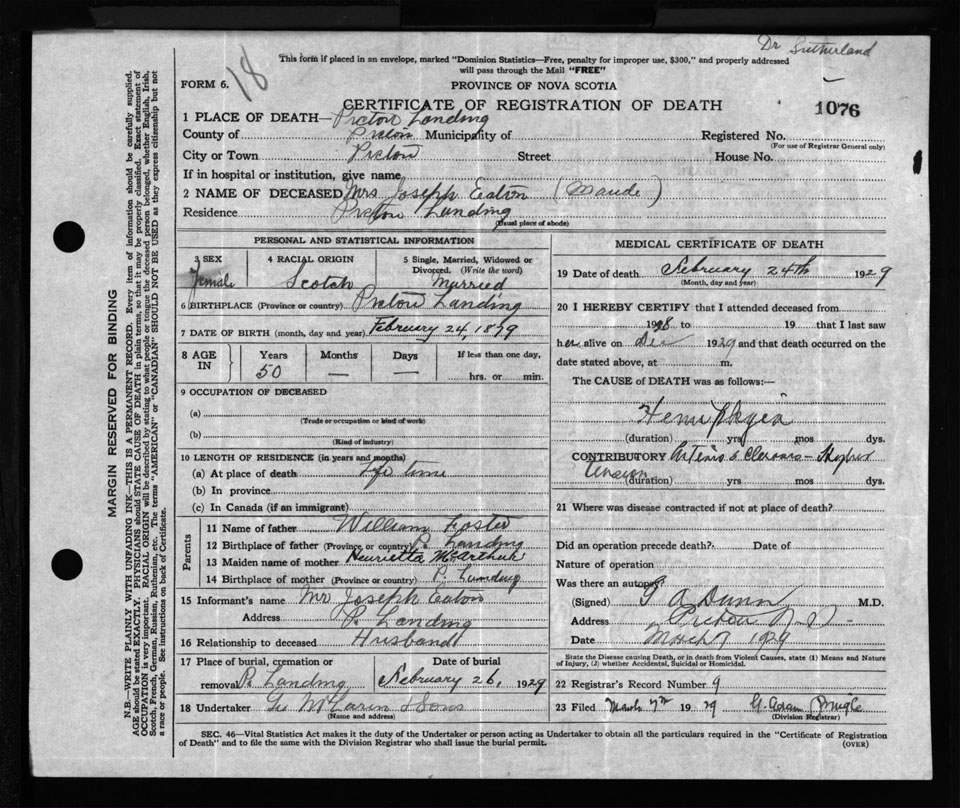 Dr Sutherland
This form if placed in an envelope, marked "Dominion Statistics—Free, penalty for improper use, $300," and properly addressed
will pass through the Mail "FREE"
FORM 6. 18 PROVINCE OF NOVA SCOTIA
CERTIFICATE OF REGISTRATION OF DEATH 1076
1 PLACE OF DEATH— Pictou Landing
County of Pictou Municipality of Registered No.
(For use of Registrar General only)
City or Town Pictou Street House No.
If in hospital or institution, give name
2 NAME OF DECEASED Mrs Joseph Eaton (Maude)
Residence Pictou Landing
(Usual place of abode)
PERSONAL AND STATISTICAL INFORMATION
3 SEX 4 RACIAL ORIGIN 5 Single, Married, Widowed or
Divorced. (Write the word)
Female Scotch Married
6 BIRTHPLACE (Province or country) Pictou Landing
7 DATE OF BIRTH (month, day and year) February 24, 1879
8 AGE IN Years Months Days If less than one day,
50 — — hrs. or min.
9 OCCUPATION OF DECEASED
(a)
(Trade or occupation or kind of work)
(b)
(Kind of industry)
10 LENGTH OF RESIDENCE (in years and months)
(a) At place of death Life time
(b) In province
(c) In Canada (if an immigrant)
Parents
11 Name of father William Foster
12 Birthplace of father (Province or country) P. Landing
13 Maiden name of mother Henrietta McArthur
14 Birthplace of mother (Province or country) P. Landing
15 Informant's name Mr Joseph Eaton
Address P. Landing
16 Relationship to deceased Husband
17 Place of burial, cremation or Date of burial
removal P. Landing February 26, 1929
18 Undertaker Geo McLaren & Sons
(Name and address)
MEDICAL CERTIFICATE OF DEATH
19 Date of death February 24th 1929
(Month, day and year)
20 I HEREBY CERTIFY that I attended deceased from
19 to 19 that I last saw
her alive on Dec 1929 and that death occurred on the
date stated above, at m.
The CAUSE of DEATH was as follows:—
Hemiplegia
(duration) yrs mos dys.
CONTRIBUTORY
Tension
(duration) yrs mos dys.
21 Where was disease contracted if not at place of death?
Did an operation precede death? Date of
Nature of operation
Was there an autopsy?
(Signed) G A Dunn M.D.
Address Pictou N.S.
Date March 7 1929
State the Disease causing Death, or in death from Violent Causes, state (1) Means and Nature
of Injury, (2) whether Accidental, Suicidal or Homicidal.
22 Registrar's Record Number 9
23 Filed March 7th 1929
(Division Registrar)
SEC. 46—Vital Statistics Act makes it the duty of the Undertaker or person acting as Undertaker to obtain all the particulars required in the "Certificate of Registration
of Death" and to file the same with the Division Registrar who shall issue the burial permit. (OVER)
MARGIN RESERVED FOR BINDING
N.B.—WRITE PLAINLY WITH UNFADING INK—THIS IS A PERMANENT RECORD. Every item of information should be carefully supplied.
AGE should be stated EXACTLY. PHYSICIANS should STATE CAUSE OF DEATH in plain terms, so that it may be properly classified. Exact statement of
OCCUPATION is very important. RACIAL ORIGIN will be described by stating to what people or tongue the deceased person belonged, whether English, Irish,
Scotch, French, German, Russian, Ruthenian, etc. The terms "AMERICAN" or "CANADIAN" SHOULD NOT BE USED as they express citizenship but not
a race or people. See instructions on back of Certificate.